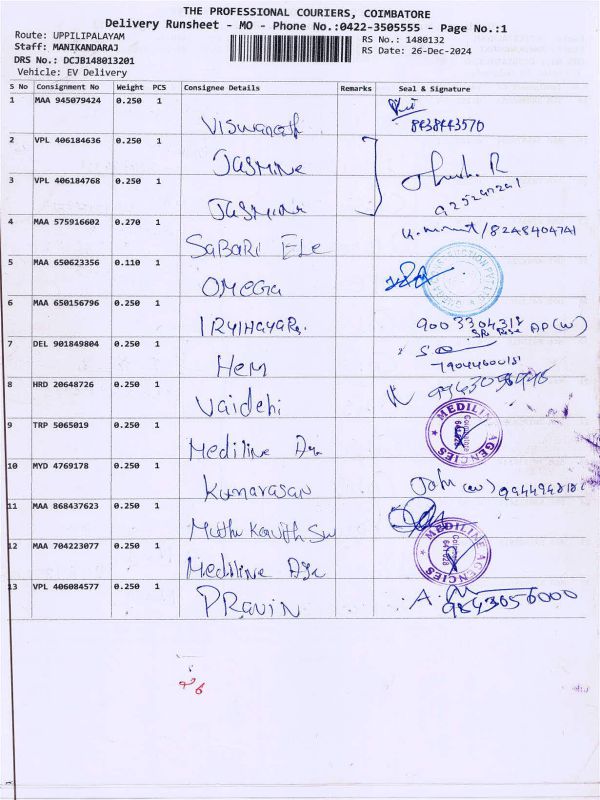 THE PROFESSIONAL COURIERS, COIMBATORE
Delivery Runsheet - MO - Phone No.:0422-3505555 - Page No.:1
Route: UPPILIPALAYAM
RS No.: 1480132
Staff: MANIKANDARAJ
RS Date: 26-Dec-2024
DRS No.: DCJB148013201
Vehicle: EV Delivery
S No Consignment No Weight PCS Consignee Details Remarks Seal & Signature
1 MAA 945079424 0.250 1 Viswanath
8438443570
2 VPL 406184636 0.250 1 JASMINe
3 VPL 406184768 0.250 1 JASMINe
4 MAA 575916602 0.270 1 SABARI ELe /8248404741
5 MAA 650623356 0.110 1 OMEGA
6 MAA 650156796 0.250 1
7 DEL 901849804 0.250 1 Hem
8 HRD 20648726 0.250 1 Vaidehi
9 TRP 5065019 0.250 1 Mediline MEDILINE AGENCIES
10 MYD 4769178 0.250 1 Kumarasan John (w)
11 MAA 868437623 0.250 1 Muthu
12 MAA 704223077 0.250 1 Mediline MEDILINE AGENCIES
13 VPL 406084577 0.250 1 PRAVIN 9843056000